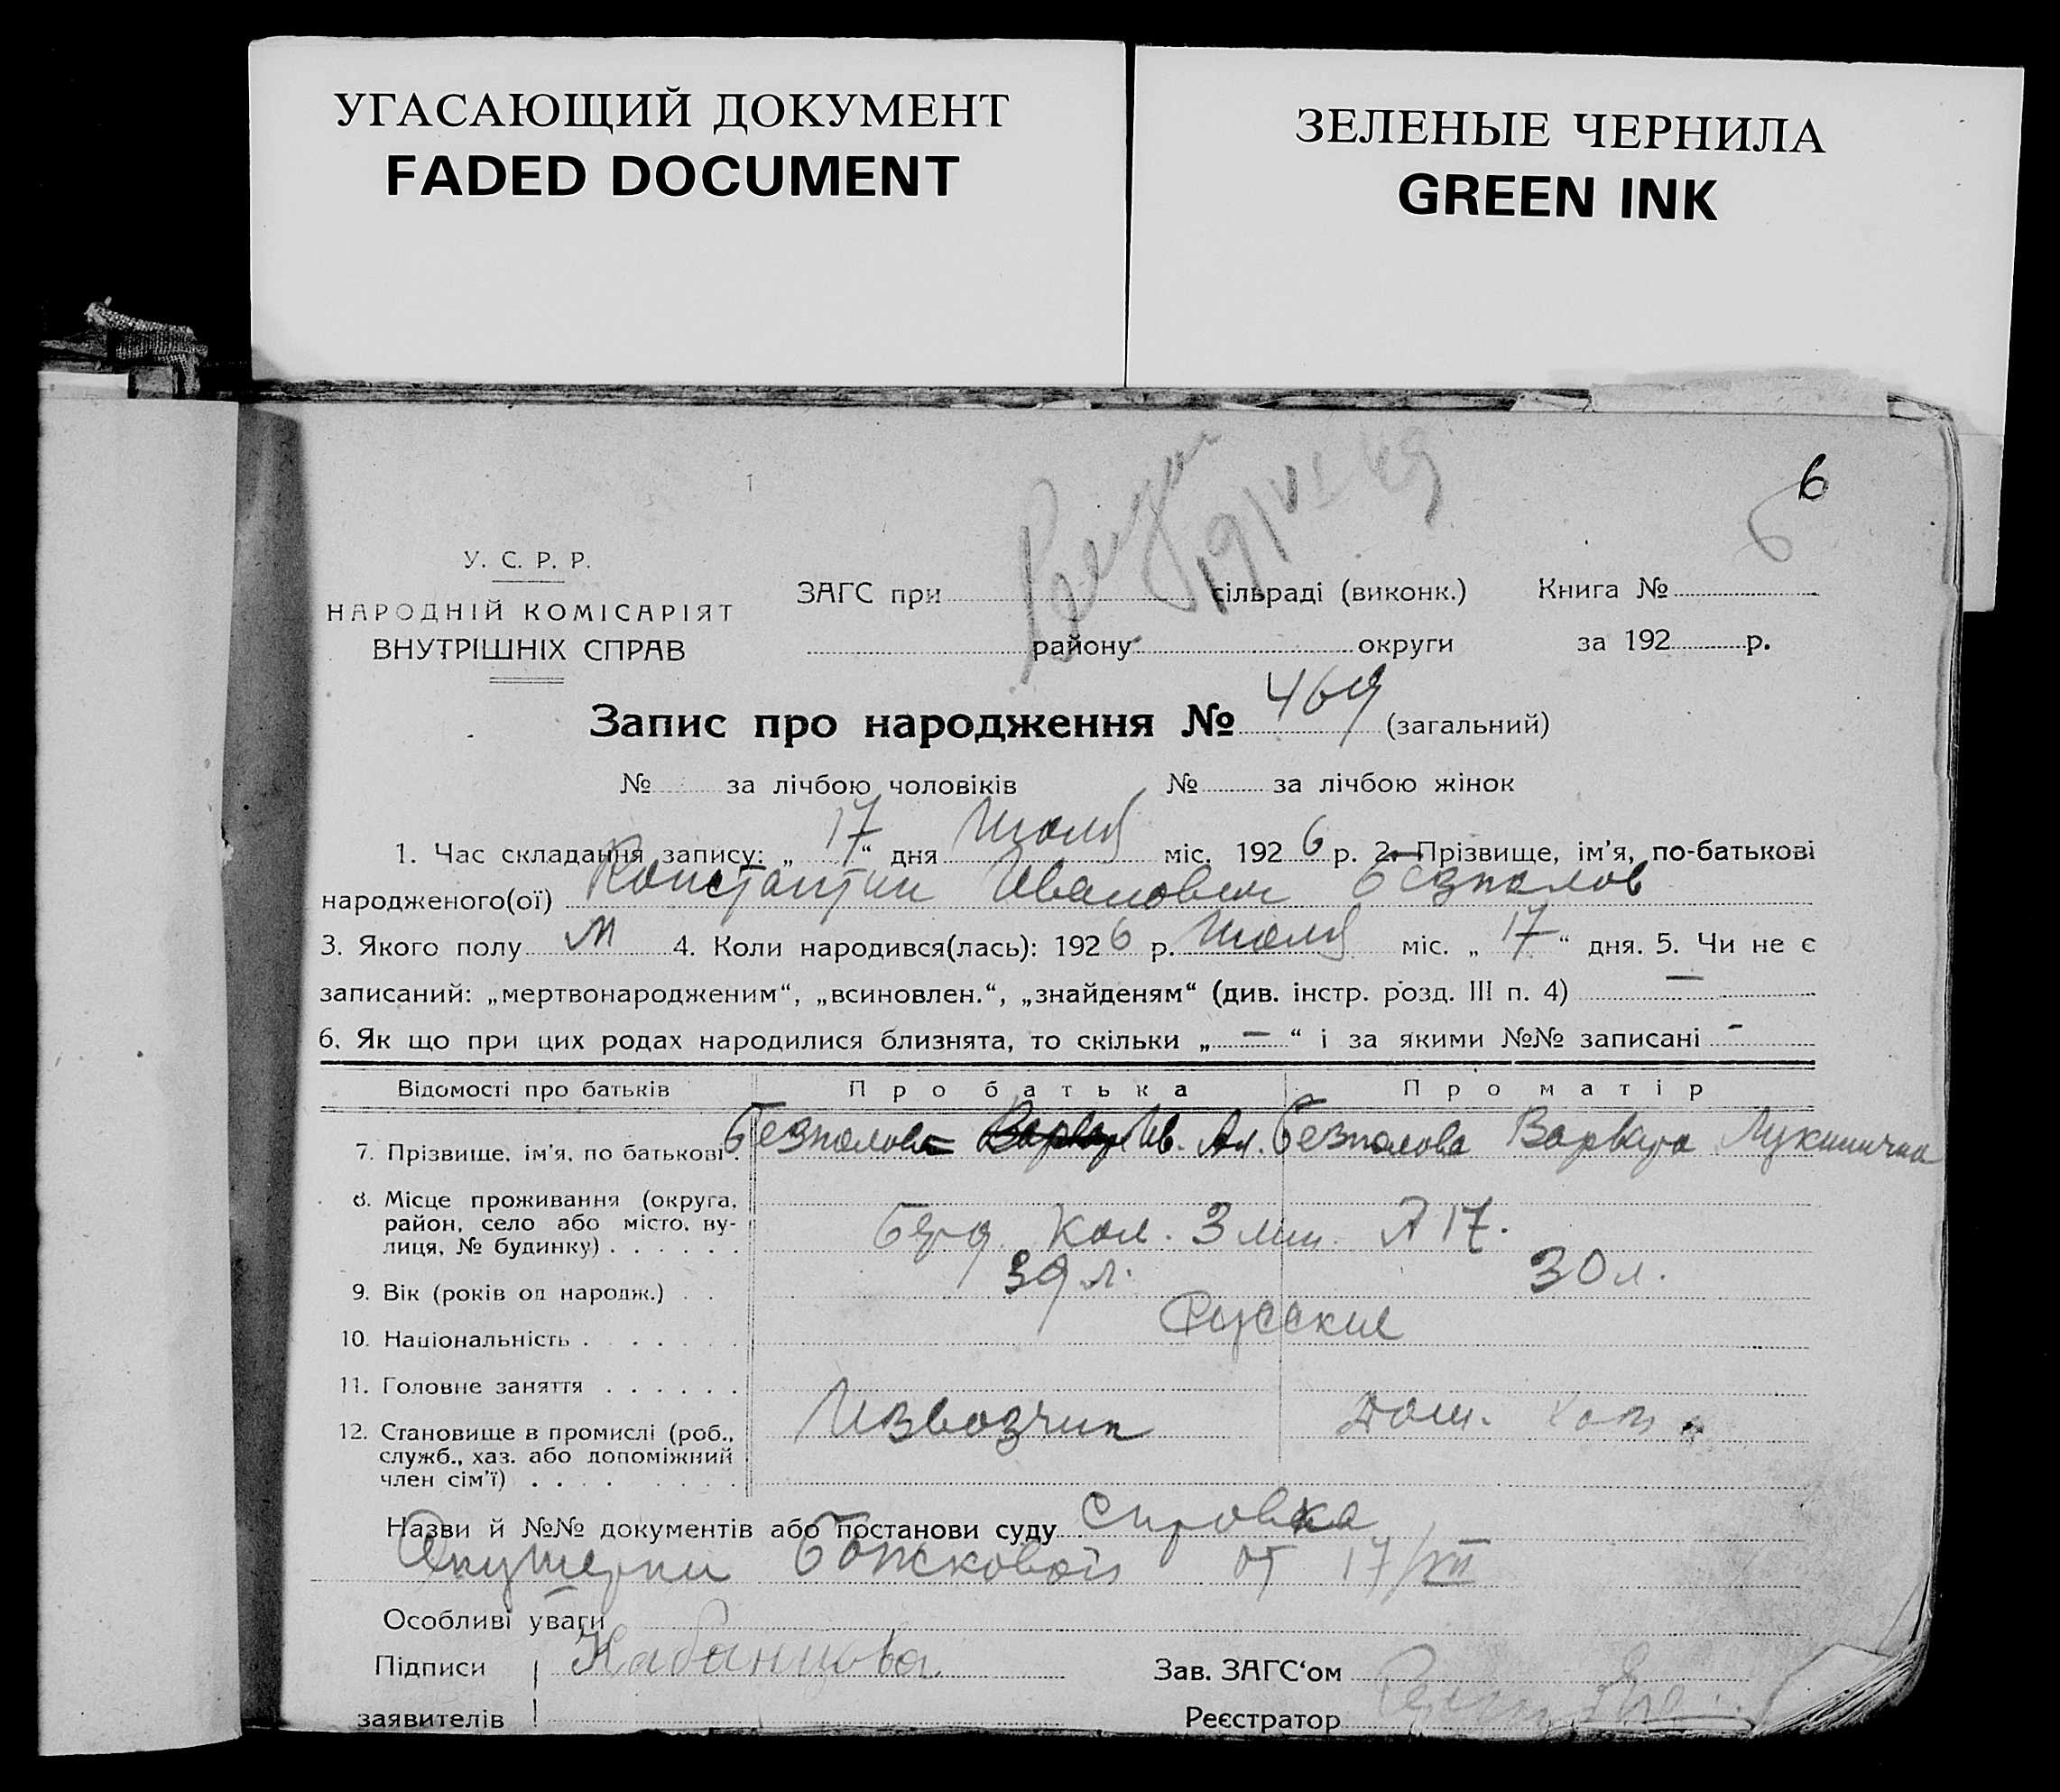 УГАСАЮЩИЙ ДОКУМЕНТ
FADED DOCUMENT
ЗЕЛЕНЫЕ ЧЕРНИЛА
GREEN INK
6
6
19/VI 49
У. С. Р. Р.
НАРОДНІЙ КОМІСАРІЯТ
ВНУТРІШНІХ СПРАВ
ЗАГС при сільраді (виконк.) Книга №
району округи за 192 р.
Запис про народження № 469 (загальний)
№ за лічбою чоловіків № за лічбою жінок
1. Час складання запису: „17“ дня Июля міс. 1926 р. 2. Прізвище, ім'я, по-батькові
народженого(ої) Константин Иванович Безпалов
3. Якого полу М 4. Коли народився(лась): 1926 р. Июля міс. „17“ дня. 5. Чи не є
записаний: „мертвонародженим“, „всиновлен.“, „знайденям“ (див. інстр. розд. III п. 4) —
6. Як що при цих родах народилися близнята, то скільки „—“ і за якими №№ записані -
Відомості про батьків Про батька Про матір
7. Прізвище, ім'я, по батькові. Безпалов Ив. Ал. Безпалова Варвара Лукинична
8. Місце проживання (округа,
район, село або місто, ву-
лиця, № будинку) . . . . . . Кол. 3 лин. 17.
9. Вік (років од народж.) . . 39 л. 30 л.
10. Національність . . . . . . . Русские
11. Головне заняття . . . . . .
12. Становище в промислі (роб., Извозчик Дом. хоз.
служб., хаз. або допоміжний
член сім'ї) . . . . . . . .
Назви й №№ документів або постанови суду Справка
Акушерки Божковой от 17/VII
Особливі уваги —
Підписи Кабанцова Зав. ЗАГС'ом
заявителів Реєстратор